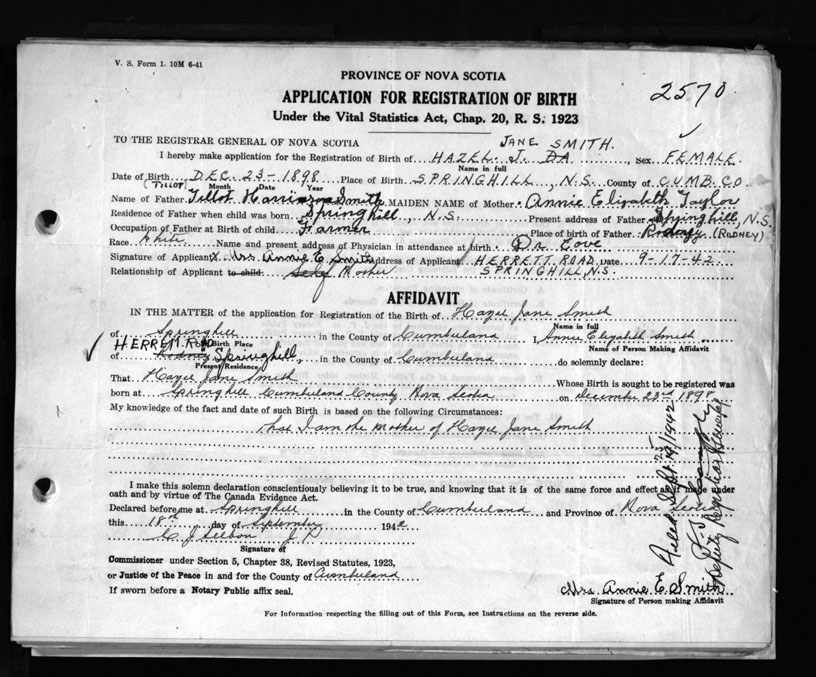 V. S. Form 1. 10M 6-41
PROVINCE OF NOVA SCOTIA
2570
APPLICATION FOR REGISTRATION OF BIRTH
Under the Vital Statistics Act, Chap. 20, R. S. 1923
TO THE REGISTRAR GENERAL OF NOVA SCOTIA JANE SMITH.
I hereby make application for the Registration of Birth of HAZEL J. DA, Sex FEMALE
Name in full
Date of Birth DEC. 23-1898 Place of Birth SPRINGHILL, N.S. County of CUMB. CO
(TILLOT) Month Date Year
Name of Father Tellot Harrison Smith MAIDEN NAME of Mother Annie Elizabeth Taylor
Residence of Father when child was born Springhill, N.S. Present address of Father Springhill, N.S.
Occupation of Father at Birth of child Farmer Place of birth of Father Rodney (RODNEY)
Race White Name and present address of Physician in attendance at birth Dr Cove
Signature of Applicant X Mrs Annie E. Smith Address of Applicant HERRETT ROAD Date 9-17-42
Relationship of Applicant to child self Mother SPRINGHILL N.S.
AFFIDAVIT
IN THE MATTER of the application for Registration of the Birth of Hazel Jane Smith
Name in full
of Springhill in the County of Cumberland I, Annie Elizabeth Smith
HERRETT RD Birth Place Name of Person Making Affidavit
of Rodney Springhill, in the County of Cumberland do solemnly declare:
Present Residence
That Hazel Jane Smith Whose Birth is sought to be registered was
born at Springhill Cumberland County Nova Scotia on December 23rd 1898
My knowledge of the fact and date of such Birth is based on the following Circumstances:
That I am the Mother of Hazel Jane Smith
I make this solemn declaration conscientiously believing it to be true, and knowing that it is of the same force and effect as if made under
oath and by virtue of The Canada Evidence Act.
Declared before me at Springhill in the County of Cumberland and Province of Nova Scotia
this 18th day of September 1942
C J J P
Signature of
Commissioner under Section 5, Chapter 38, Revised Statutes, 1923,
or Justice of the Peace in and for the County of Cumberland
If sworn before a Notary Public affix seal.
Mrs. Annie E. Smith
Signature of Person making Affidavit
Filed Sept 1942
Deputy Registrar General
For Information respecting the filling out of this Form, see Instructions on the reverse side.